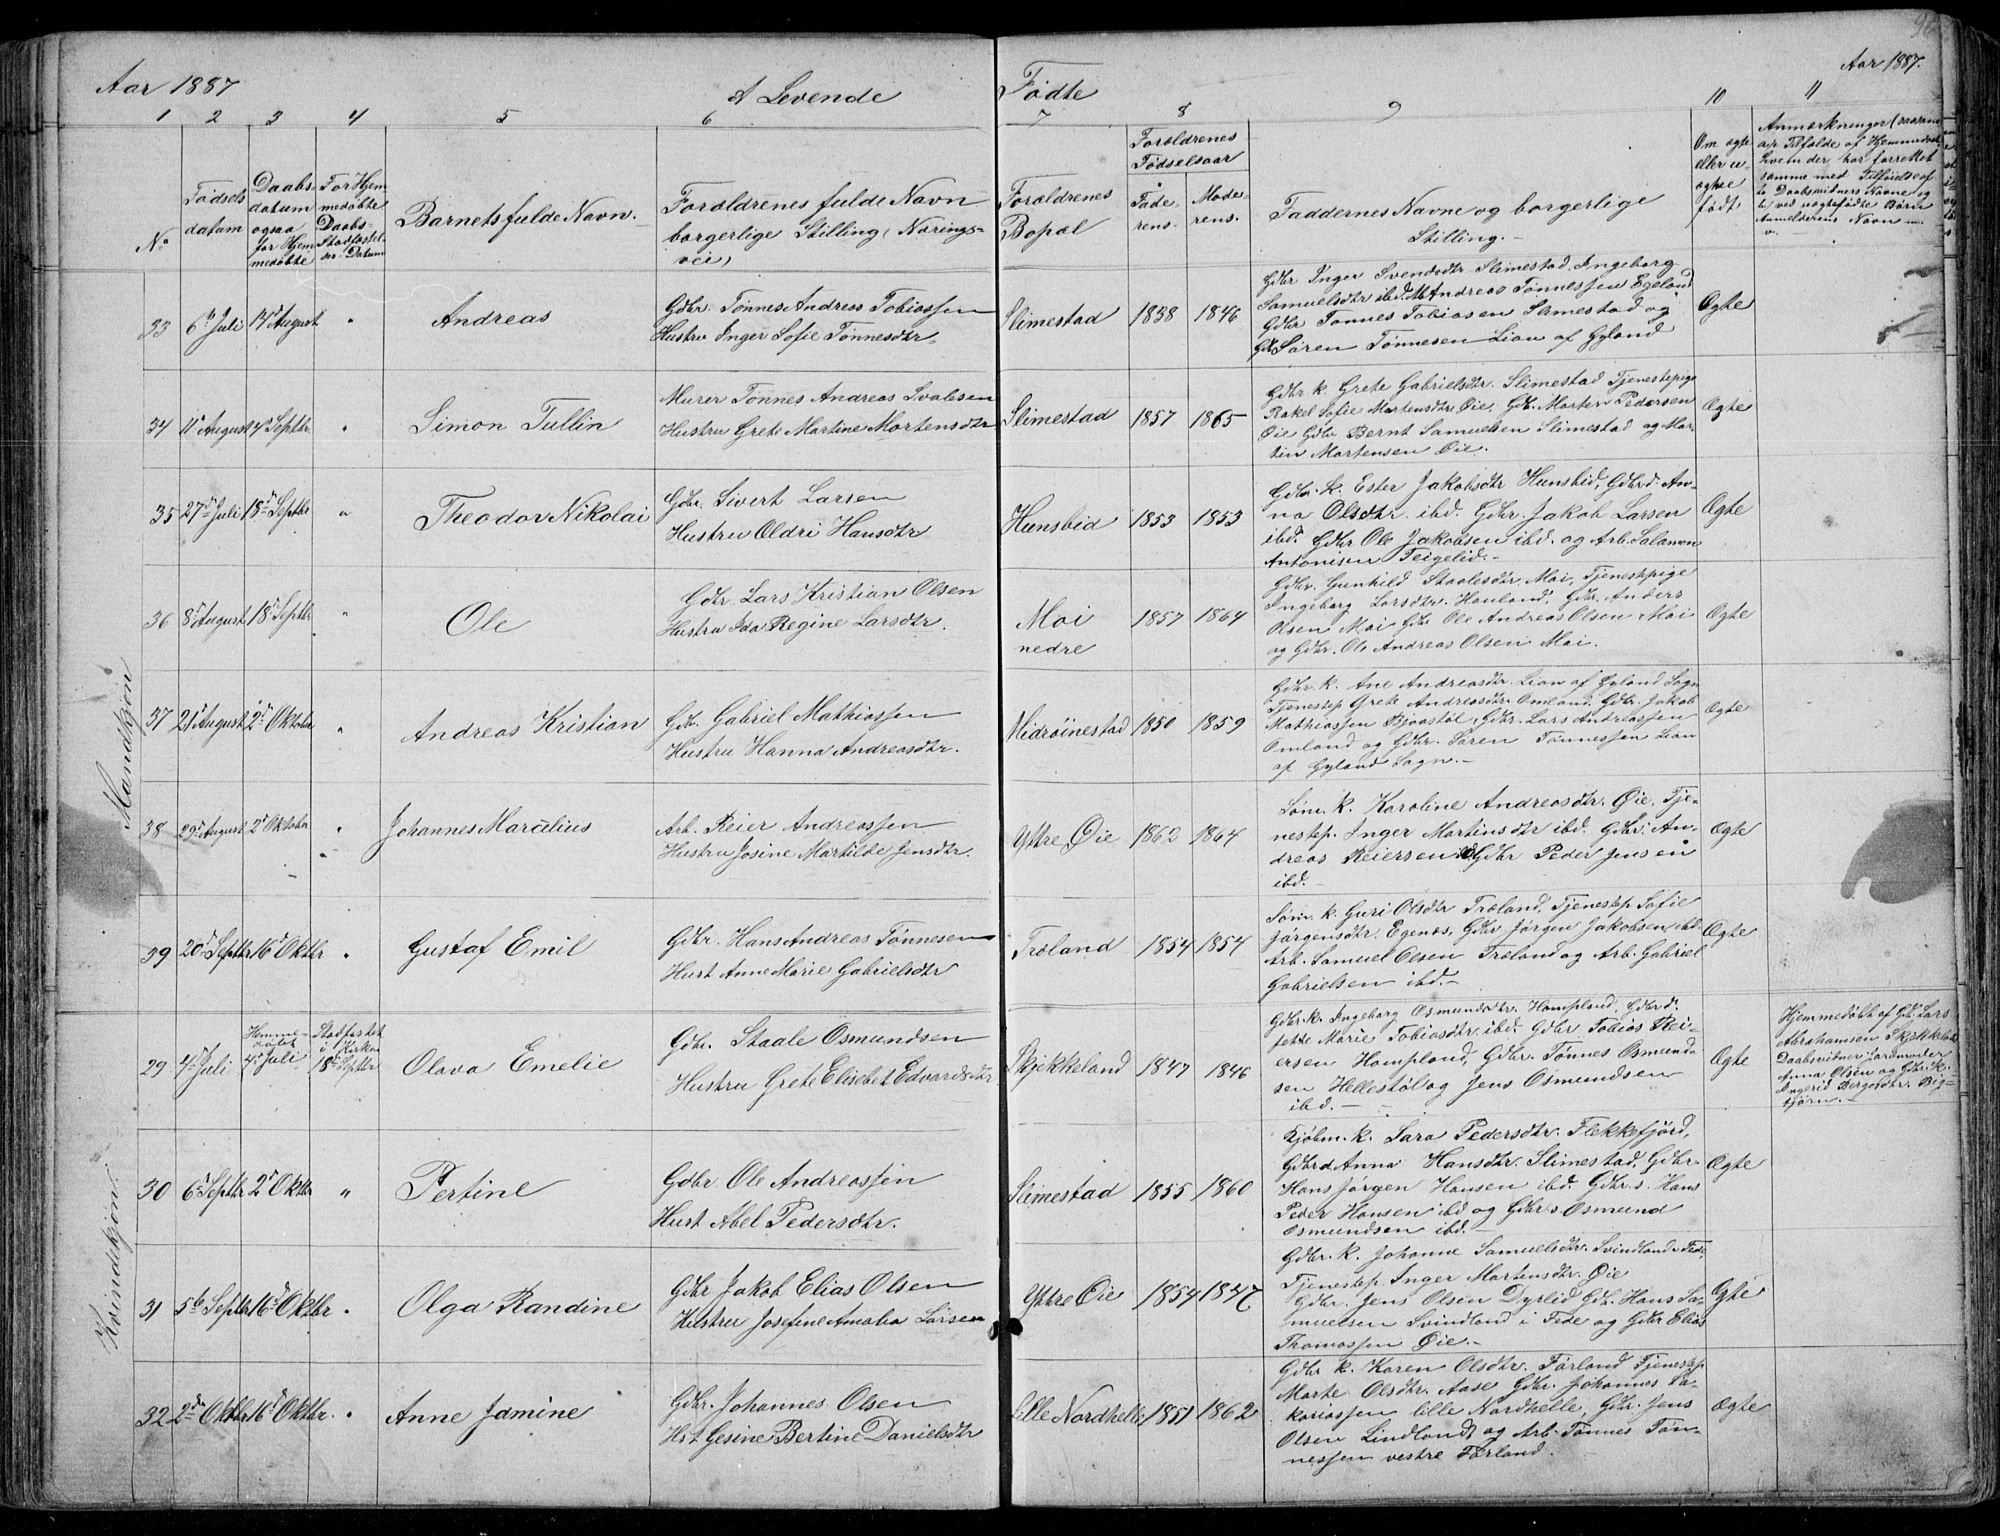 96
Aar 1887
A Levende
Fødte
Aar 1887.
1 2 3 4 5 6 7 8 9 10 11
No
Fødsels
datum
Daabs-
datum
ogsaa
for Hjem
medøbte
For Hjem
medøbte
Daabs-
Stadfæstel-
ses-Datum
Barnets fulde Navn.
Forældrenes fulde Navn
borgerlige Stilling (Nærings-
vei)
Forældrenes
Bopæl
Forældrenes
Fødselsaar
Fade-
rens.
Mode-
rens.
Faddernes Navne og borgerlige
Stilling.
Om ægte
eller u-
ægte
født
Anmærkninger
Mandkjøn
33 6te Juli 14d August " Andreas
Gdbr. Tønnes Andreas Tobiassen
Hustru Inger Sofie Tønnesdtr.
Slimestad 1858 1846
Gdbr Inger Svendsdtr Slimestad, Ingeborg
Samuelsdtr ibd. Andreas Tønnessen Egeland
Gdbr Tønnes Tobiasen Slimestad og
Søren Tønnesen Lian af Gyland
Ægte
34 11d August 4d Septbr " Simon Tullin
Murer Tønnes Andreas
Hustru Grete Martine Mortensdtr
Slimestad 1857 1865
Gdbr k. Grete Gabrielsdtr. Slimestad Tjenestepige
Rakel Sofie Mortensdtr Øie, Gdbr. Morten Pedersen
Øie Gdbr Bernt Samuelsen Slimestad og Mar-
tin Mortensen Øie.
Ægte
35 27d Juli 18d Septbr " Theodor Nikolai
Gdbr. Sivert Larsen
Hustru Oldri Hansdtr
Hunsbid 1853 1853
Gdbr. k. Ester Jakobsdtr Hunsbid, Gdbrd. An-
na Olsdtr. ibd. Gdbr. Jakob Larsen
ibd. Gdbr Ole Jakobsen ibd. og Arb. Salamon
Antonisen Teigelid.
Ægte
36 8d August 18d Septbr " Ole
Gdbr. Lars Kristian Olsen
Hustru Ida Regine Larsdtr.
Moi
nedre
1857 1864
Gdbr. Gunhild Staalesdtr. Moi, Tjenestepige
Ingeborg Larsdtr. Hauland, Gdbr. Anders
Olsen Moi Gdbr Ole Andreas Olsen Moi
og Gdbr. Ole Andreas Olsen Moi.
Ægte
37 21d August 2d Oktober " Andreas Kristian
Gdbr. Gabriel Mathiassen
Hustru Hanna Andreasdtr.
Midrøinestad 1850 1859
Gdbr. k. Ane Andreasdtr. Lian af Gyland Sogn
Tjenestep Grete Andreasdtr Omland, Gdbr. Jakob
Mathiassen Bjoastøl, Gdbr. Lars Andreassen
Omland og Gdbr. Søren Tønnessen Lian
af Gyland Sogn.
Ægte
38 29d August 2d Oktober " Johannes Marcelius
Arb. Reier Andreassen
Hustru Josine Martilde Jensdtr.
Yttre Øie 1862 1864
Søm. k. Karoline Andreasdtr. Øie, Tje-
nestep. Inger Martinsdtr ibd. Gdbr. An-
dreas Reiersen Gdbr Peder Jensen
ibd.
Ægte
39 20d Septbr 16d Oktbr " Gustaf Emil
Gdbr. Hans Andreas Tønnesen
Hust Anne Marie Gabrielsdtr
Træland 1854 1854
Søm. k. Guri Olsdtr Træland, Tjenestep Sofie
Jørgensdtr. Egenæs, Gdbr Jørgen Jakobsen, ibd.
Arb. Samuel Olsen Træland og Arb. Gabriel
Gabrielsen ibd.
Ægte
Kvindekjøn.
29 4d Juli
Hjemme-
døbt
4d Juli
Stadfæstet
i Kirken
18d Septbr
Olava Emelie
Gdbr. Staale Osmundsen
Hustru Grete Elisebet Edvardsdtr
Skjekkeland 1847 1846
Gdbr k. Ingeborg Osmundsdtr. Hompland, Gdbrd.
Marie Tobiasdtr. ibd. Gdbr Tobias Rei-
ersen Hompland, Gdbr. Tønnes Osmund-
sen Hellestøl og Jens Osmundsen
ibd.
Ægte
Hjemmedøbt af Gdbr. Lars
Abrahamsen Skjekkeland
Daabsvidner Jordmoder
Anna Olsen og Gdbr. k.
Ingerid Bergesdtr. Big-
tjørn.
30 6d Septbr 2d Oktbr " Pertine
Gdbr. Ole Andreassen
Hust Abel Pedersdtr.
Slimestad 1855 1860
Kjøbm. k. Sara Pedersdtr. Flekkefjord,
Gdbrd Anna Hansdtr. Slimestad, Gdbr.
Hans Jørgen Hansen ibd. Gdbr. s. Hans
Peder Hansen ibd og Gdbr. s. Osmund
Osmundsen ibd.
Ægte
31 5te Septbr 16d Oktbr " Olga Randine
Gdbr Jakob Elias Olsen
Hustru Josefine Amalia Larsen
Yttre Øie 1854 1847
Gdbr. k. Johanne Samuelsdtr. Svindland i Fede
Tjenestep. Inger Martensdtr. Øie
Gdbr. Jens Olsen Dyrlid Gdbr. Hans Sa-
muelsen Svindland i Fede og Gdbr Elias
Thomassen Øie.
Ægte
32 2den Oktbr 16d Oktbr. " Anne Jamine
Gdbr. Johannes Olsen
Hst Gesine Bertine Danielsdtr
Lille Nordhelle 1851 1862
Gdbr k. Karen Olsdtr. Førland Tjenestep
Marte Olsdtr. Aase Gdbr. Johannes Sa-
kariassen lille Nordhelle, Gdbr. Jens
Olsen Lindland og Arb. Tønnes Tøn-
nessen vestre Førland.
Ægte